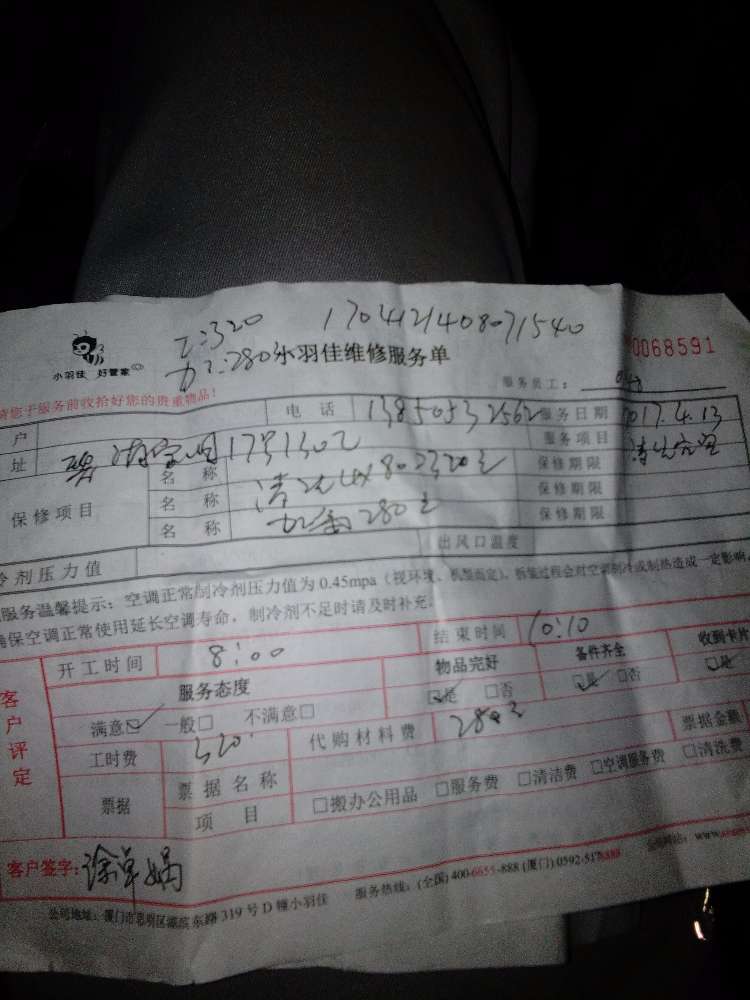 工:320 1704121408071540
小羽佳 好管家
加:280 小羽佳维修服务单
0068591
请您于服务前收拾好您的贵重物品!
服务员工:
户 电话 13850532562 服务日期 2017.4.13
址 服务项目
保修项目 名称 保修期限
名称 保修期限
名称 280元 保修期限
冷剂压力值 出风口温度
服务温馨提示:空调正常制冷剂压力值为 0.45mpa(视环境、机型而定)。拆装过程会对空调制冷或制热造成一定影响,
确保空调正常使用延长空调寿命,制冷剂不足时请及时补充。
客户评定
开工时间 8:00 结束时间 10:10
服务态度 物品完好 备件齐全 收到卡片
满意☑ 一般□ 不满意□ ☑是 □否 ☑是 □否 ☑是
工时费 320 代购材料费 280元 票据金额
票据 票据名称
项目 □搬办公用品 □服务费 □清洁费 □空调服务费 □清洗费
客户签字:
公司地址:厦门市思明区湖滨东路 319 号 D 幢小羽佳 服务热线:(全国) 400-6655-888 (厦门) 0592-5178889